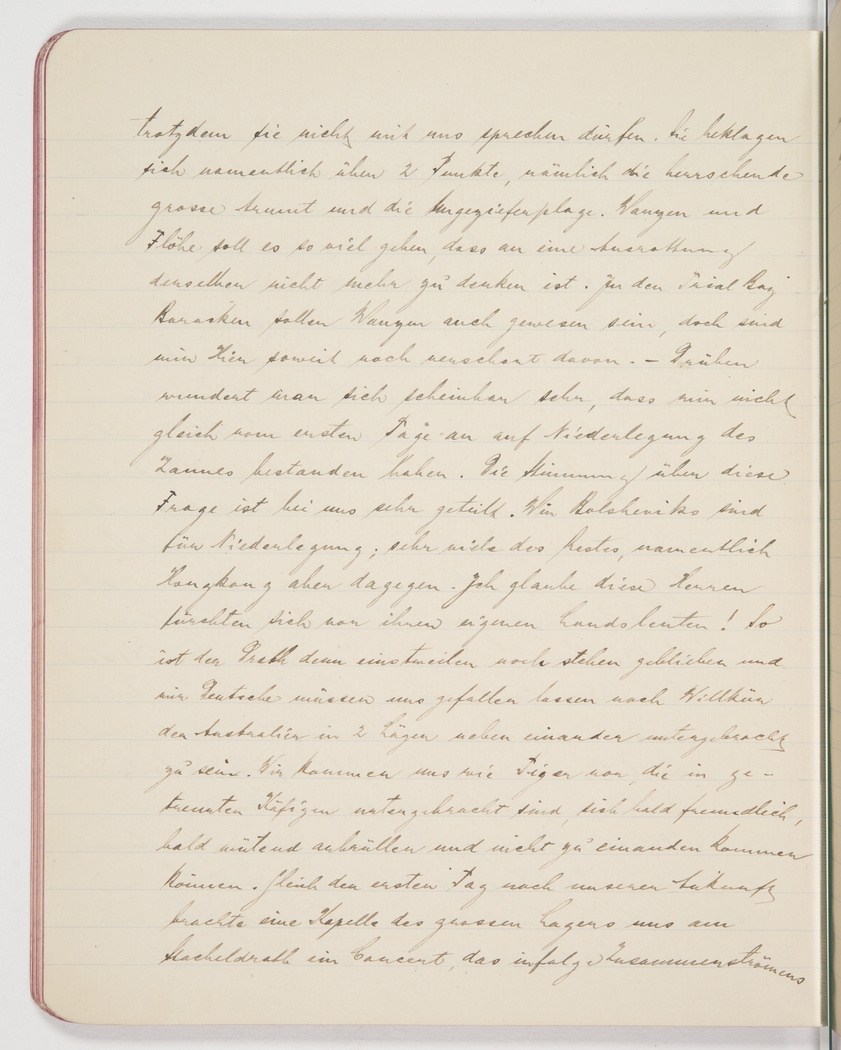 trotzdem sie nicht mit uns sprechen dürfen. Sie beklagen
sich namentlich über 2 Punkte, nämlich die herrschende
grosse Armut und die Ungezieferplage. Wanzen und
Flöhe soll es so viel geben, dass an eine Ausrottung
derselben nicht mehr zu denken ist. In den Trial Bay
Baracken sollen Wanzen auch gewesen sein, doch sind
wir Hier soweit noch verschont davon. – Drüben
wundert man sich scheinbar sehr, dass wir nicht
gleich vom ersten Tage an auf Niederlegung des
Zaunes bestanden haben. Die Stimmung über diese
Frage ist bei uns sehr geteilt. Wir Bolsheviks sind
für Niederlegung; sehr viele des Restes, namentlich
Hongkong aber dagegen. Ich glaube diese Herren
fürchten sich vor ihren eigenen Landsleuten! So
ist der Drath denn einstweilen noch stehen geblieben und
wir Deutsche müssen uns gefallen lassen nach Willkür
der Australier in 2 Lägern neben einander untergebracht
zu sein. Wir kommen uns wie Tiger vor, die in ge-
trennten Käfigen untergebracht sind, sich bald freundlich,
bald wütend anbrüllen und nicht zu einander kommen
können. Gleich den ersten Tag nach unserer Ankunft
brachte eine Kapelle des grossen Lagers uns am
Stacheldrath ein Concert, das infolge Zusammenströmens